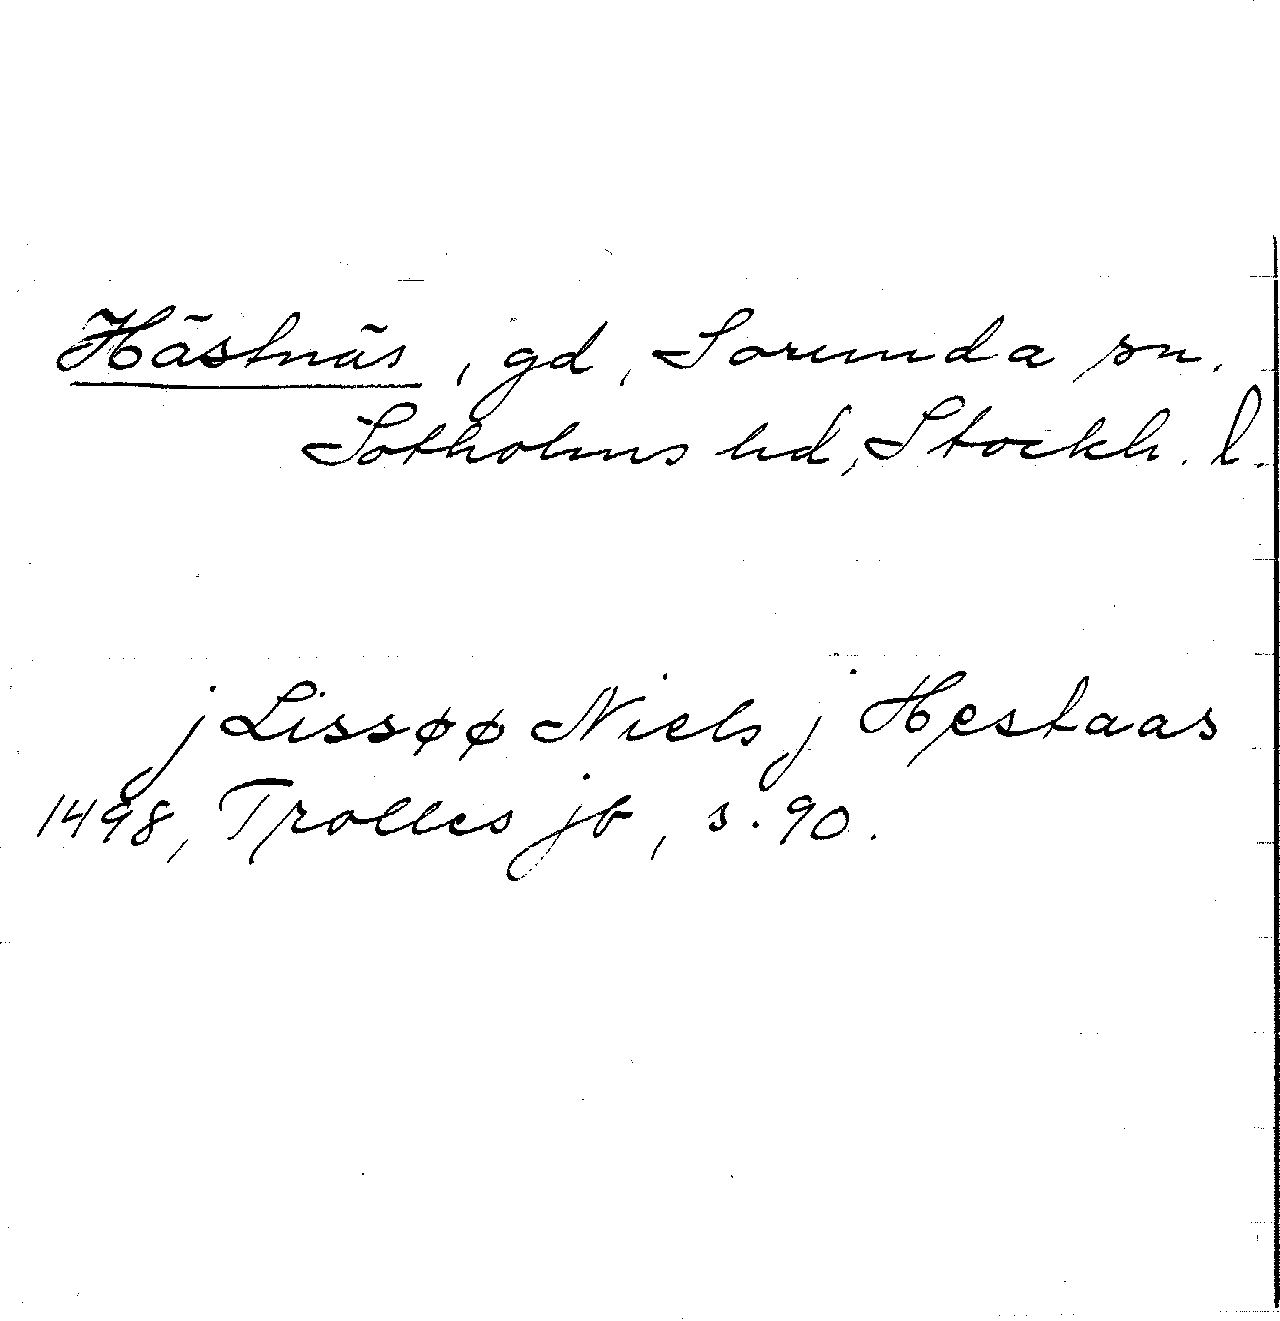 Hästnäs, gd, Sorunda sn.
Sotholms hd, Stockh. l.
j Lissøø Niels j Hestaas
1498, Trolles jb, s. 90.